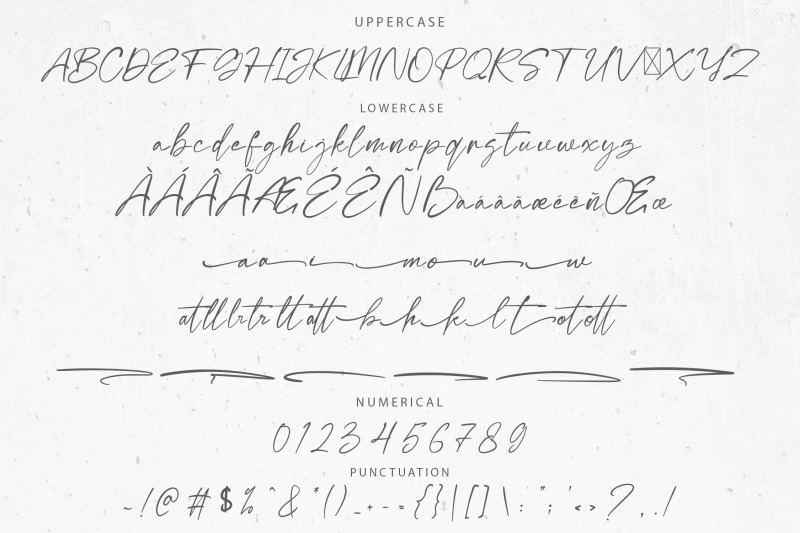 UPPERCASE
ABCDEFGHIJKLMNOPQRSTUV☒XYZ
LOWERCASE
abcdefghijklmnopqrstuvwxyz
ÀÁÂÃÆÉÊÑßàáâãæéêñŒœ
a a i m o u w
at ll br tr lt att b h k l t ot ott
NUMERICAL
0123456789
PUNCTUATION
~!@#$%^&*()_+-={}|[]\:";'<>?,./